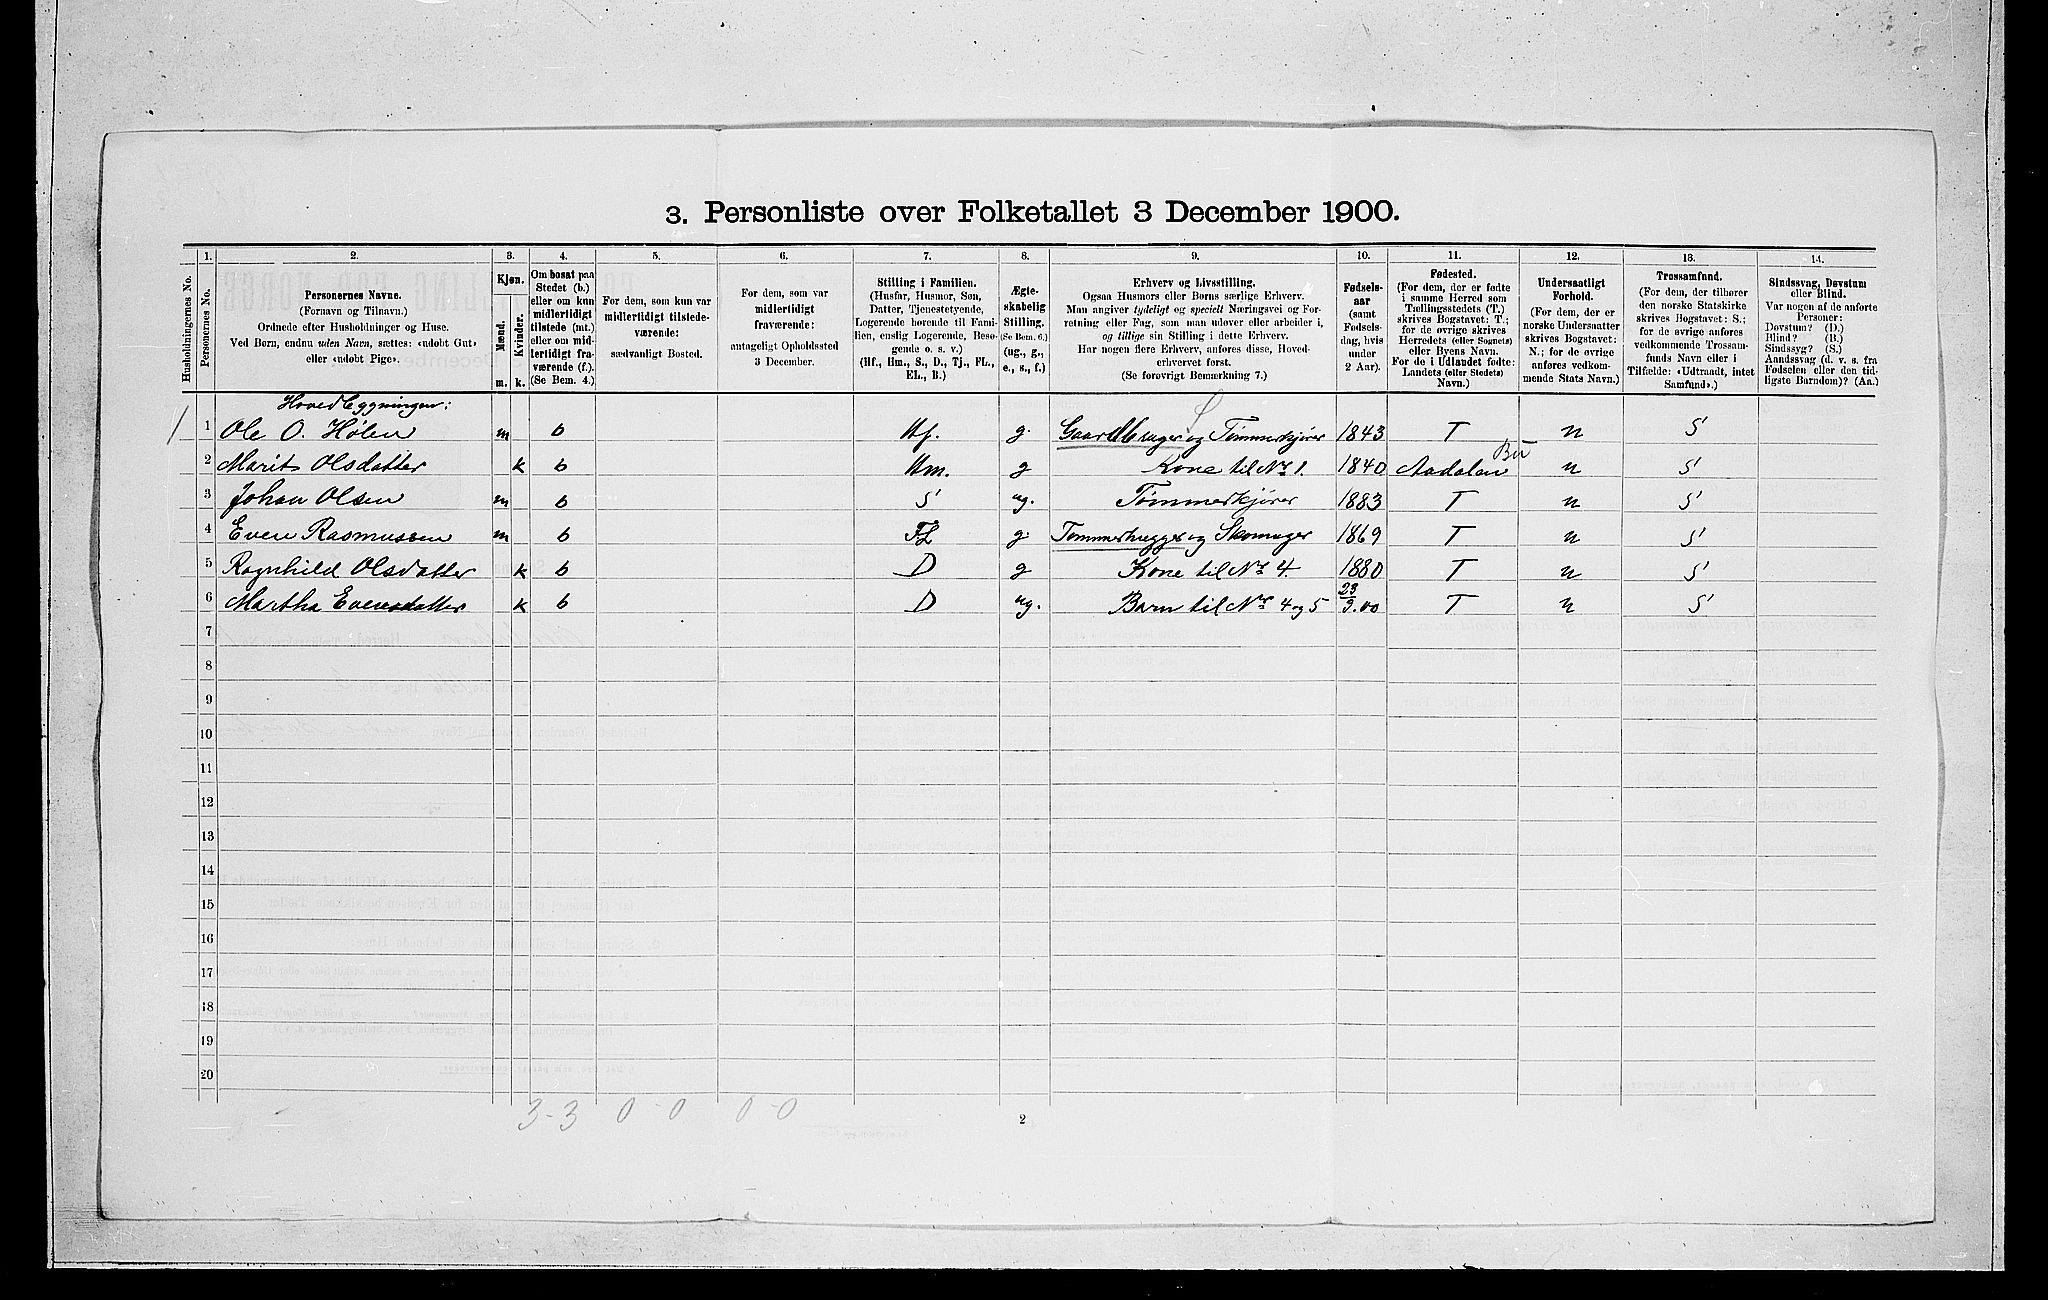 3. Personliste over Folketallet 3 December 1900.
1. 2. 3. 4. 5. 6. 7. 8. 9. 10. 11. 12. 13. 14.
Husholdningernes No.
Personernes No.
Personernes Navne.
(Fornavn og Tilnavn.)
Ordnede efter Husholdninger og Huse.
Ved Børn, endnu uden Navn, sættes: «udøbt Gut»
eller «udøbt Pige».
Kjøn.
Mænd.
Kvinder.
m. k.
Om bosat paa
Stedet (b.)
eller om kun
midlertidigt
tilstede (mt.)
eller om mid-
lertidigt fra-
værende (f.).
(Se Bem. 4.)
For dem, som kun var
midlertidigt tilstede-
værende:
sædvanligt Bosted.
For dem, som var
midlertidigt
fraværende:
antageligt Opholdssted
3 December.
Stilling i Familien.
(Husfar, Husmor, Søn,
Datter, Tjenestetyende,
Logerende hørende til Fami-
lien, enslig Logerende, Besø-
gende o. s. v.)
(Hf., Hm., S., D., Tj., FL.,
EL., B.)
Ægte-
skabelig
Stilling.
(Se Bem. 6.)
(ug., g.,
e., s., f.)
Erhverv og Livsstilling.
Ogsaa Husmors eller Børns særlige Erhverv.
Man angiver tydeligt og specielt Næringsvei og For-
retning eller Fag, som man udøver eller arbeider i,
og tillige sin Stilling i dette Erhverv.
Har nogen flere Erhverv, anføres disse, Hoved-
erhvervet først.
(Se forøvrigt Bemerkning 7.)
Fødsels-
aar
(samt
Fødsels-
dag, hvis
under
2 Aar).
Fødested.
(For dem, der er fødte
i samme Herred som
Tællingsstedets (T.)
skrives Bogstavet: T.;
for de øvrige skrives
Herredets (eller Sognets)
eller Byens Navn.
For de i Udlandet fødte:
Landets (eller Stedets)
Navn.)
Undersaatligt
Forhold.
(For dem, der er
norske Undersaatter
skrives Bogstavet:
N.; for de øvrige
anføres vedkom-
mende Stats Navn.)
Trossamfund.
(For dem, der tilhører
den norske Statskirke
skrives Bogstavet: S.;
for de øvrige anføres
vedkommende Trossam-
funds Navn eller i
Tilfælde: «Udtraadt, intet
Samfund».)
Sindssvag, Døvstum
eller Blind.
Var nogen af de anførte
Personer:
Døvstum? (D.)
Blind? (B.)
Sindssyg? (S.)
Aandssvag (d. v. s. fra
Fødselen eller den tid-
ligste Barndom)? (Aa.)
Hovedbygningen:
1 1 Ole O. Hølen m b Hf. g. Gaardbruger og Tømmerkjører 1843 T n S
2 Marit Olsdatter k b Hm. g Kone til No 1. 1840 Aadalen Bu n S
3 Johan Olsen m b S ug. Tømmerkjører 1883 T n S
4 Even Rasmussen m b FL g. Tømmerhugger og Skomager 1869 T n S
5 Ragnhild Olsdatter k b D g Kone til No 4. 1880 T n S
6 Martha Evensdatter k b D ug. Barn til No 4 og 5 23/9.00 T n S
7
8
9
10
11
12
13
14
15
16
17
18
19
20
3-3 0-0 0-0
2